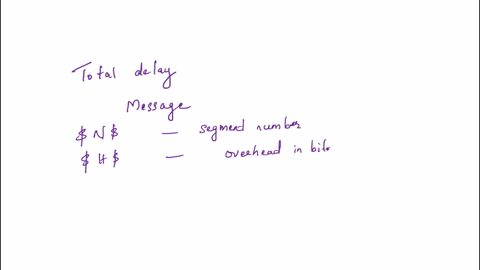 Total delay
Message
$N$ — segment number
$H$ — overhead in bits